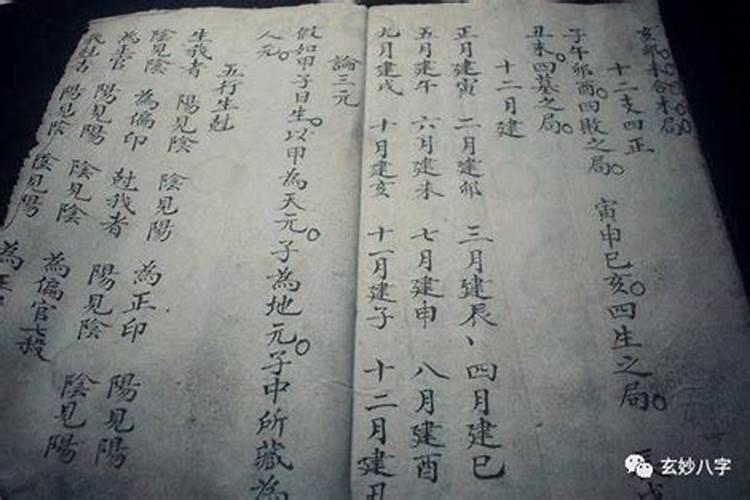 亥卯未合木局
十二支四正
子午卯酉四敗之局 寅申巳亥四生之局
丑未四墓之局
十二月建
正月建寅 二月建卯 三月建辰、四月建巳
五月建午 六月建未 七月建申 八月建酉
九月建戌 十月建亥 十一月建子 十二月建丑
論三元
假如甲子日生以甲為天元子為地元子中所藏為
人元
五行生尅
生我者 陽見陰 陰見陽 為正印 陽見陽
陰見陰 為偏印 尅我者 陽見陰 陰見陽
為正官 陽見陽 陰見陰 為偏官七殺
我尅者 陽見陰 陰見陽 為正
玄妙八字